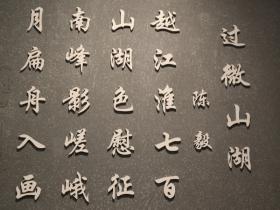 过微山湖
陈毅
越江淮七百
山湖色慰征
南峰影嵯峨
月扁舟入画